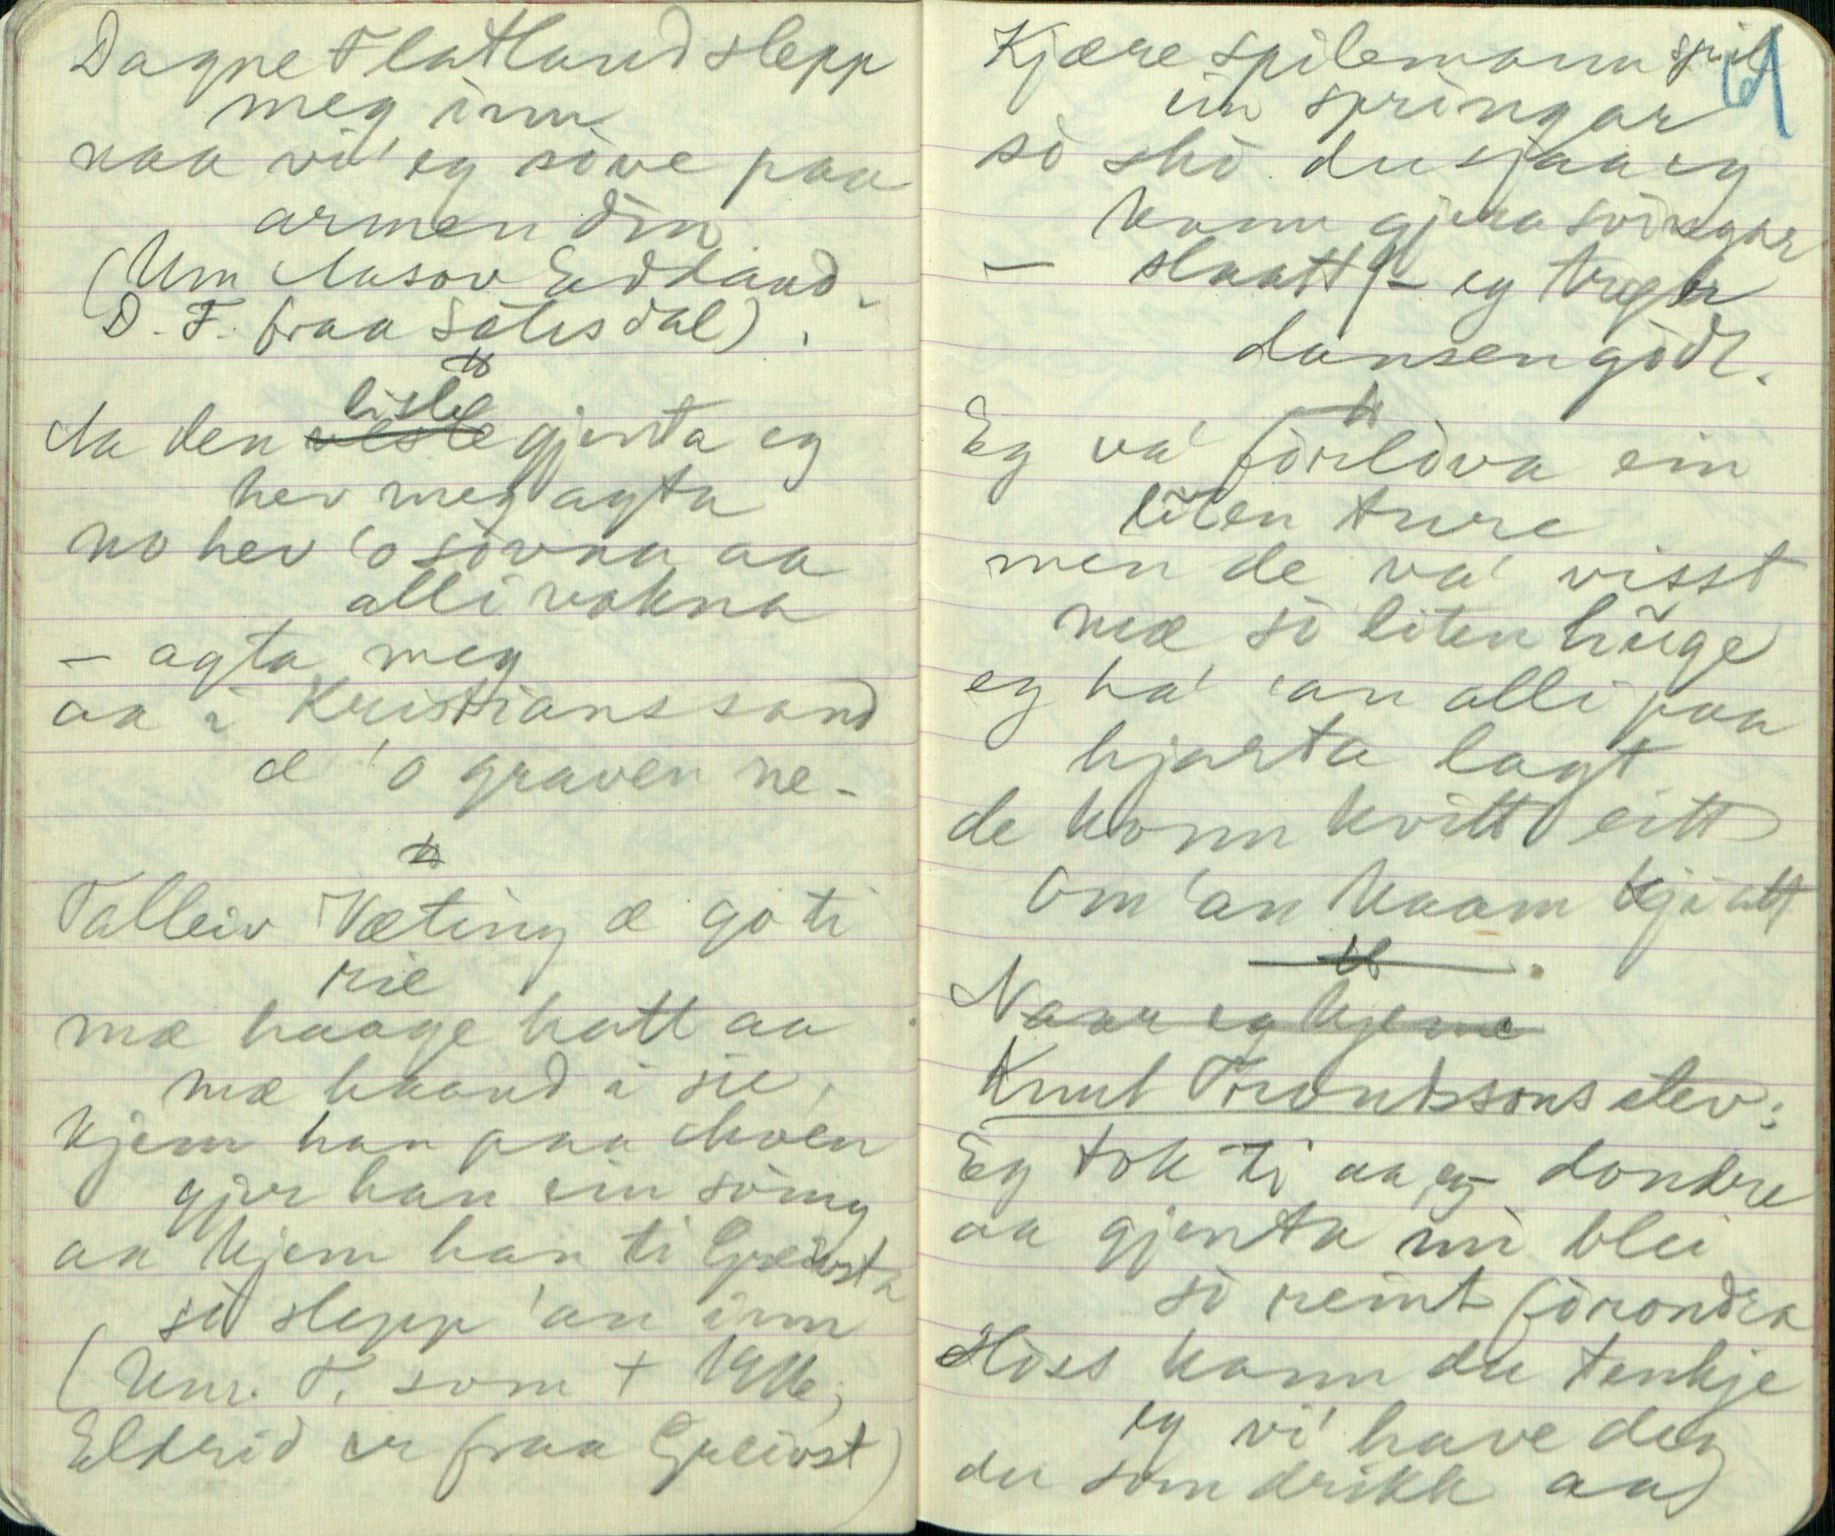 Dagne Flatland slepp
meg inn
naa vi' eg sòve paa
armen din
(Um Aasov Eidland.
D. F. fraa Sætesdal).
Aa den lisle gjenta eg
hev meg agta
no hev 'o sòvna aa
alli vakna
— agta meg
aa i Kristianssand
æ 'o graven ne -
Talleiv Væting æ go ti
rie
mæ haage hatt aa
mæ haand i sie,
kjem han paa Moen
gjer han ein söing
aa kjem han ti Greivst
sò slepp 'an inn
(Um T. som +
Eldrid er fraa Greivst)
61
Kjære spilemann spil
ein springar
sò skò du sjaa eg
kann gjera svingar
— slaatt — eg
dansen godt.
Eg va' fòrlòva ein
liten ture
men de va' visst
mæ sò liten hüge
eg ha' 'an alli paa
hjarta lagt
de konn kvitt eitt
om 'an kaam kji att
Naar eg kjeme
Knut Trondssons stev:
Eg tok ti aa eg dondre
aa gjenta mi blei
sò reint fòrondra
Hòss kann du tenkje
eg vi' have deg
du som drikk aa